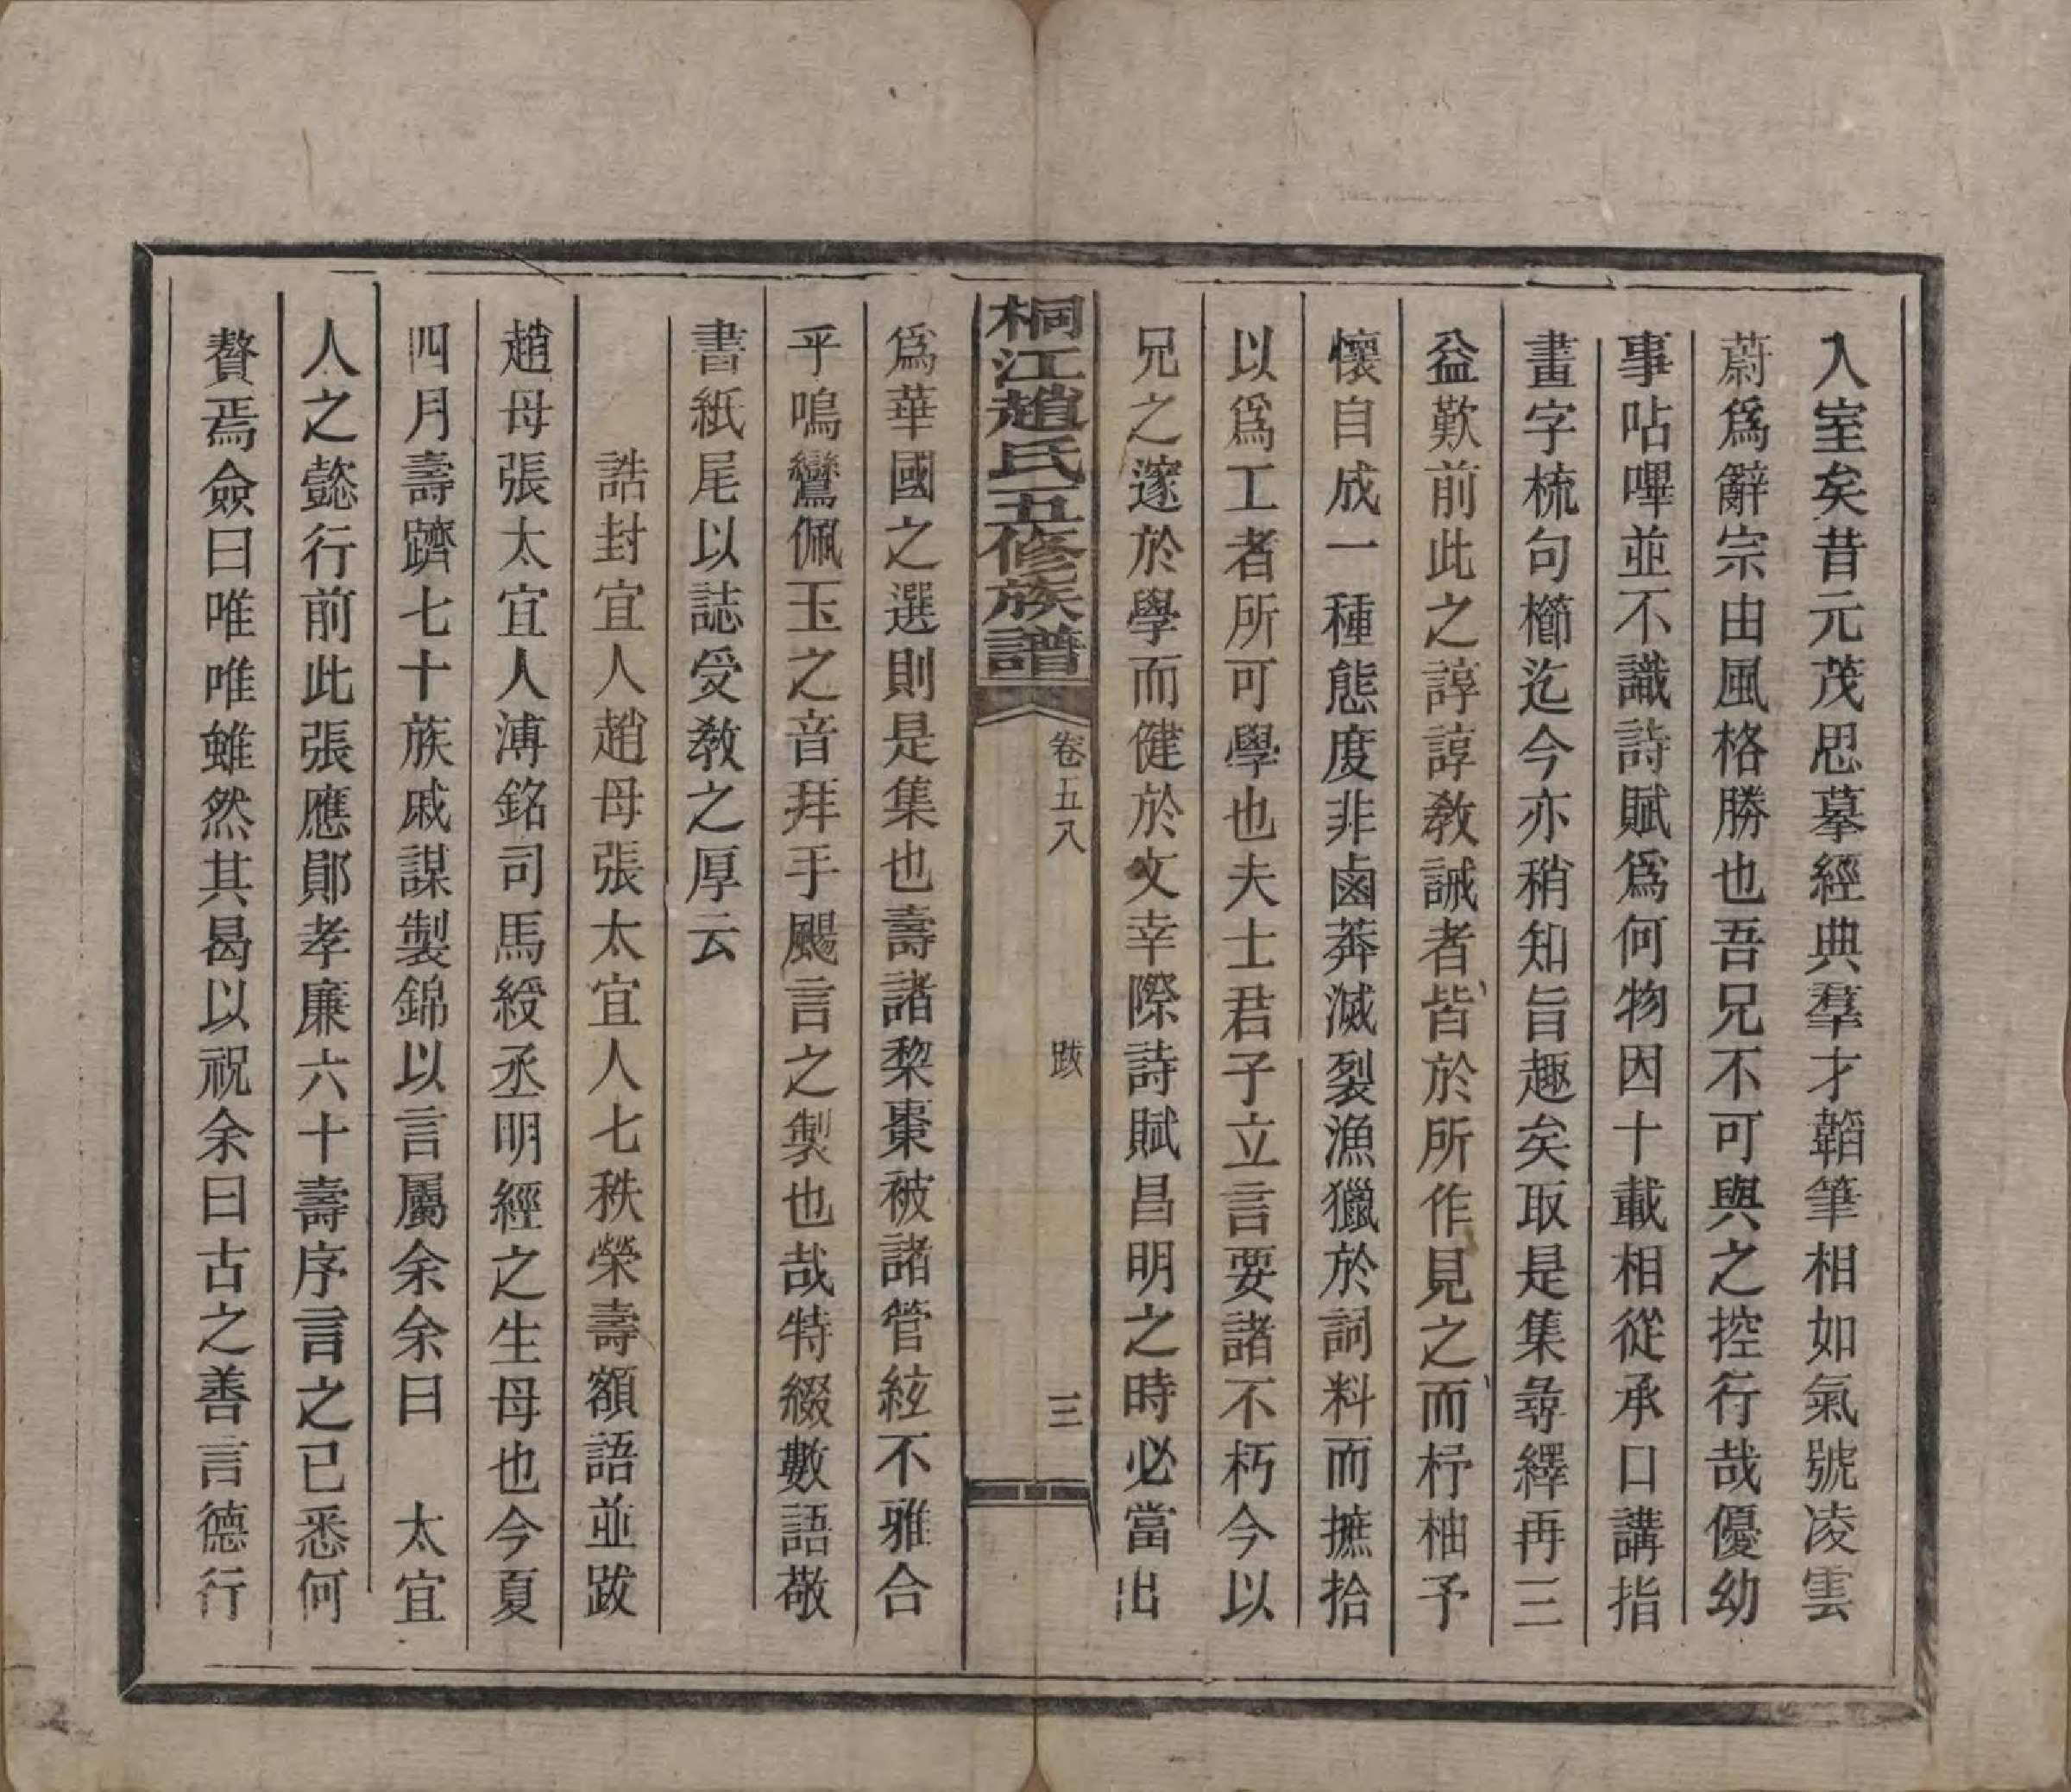 入室矣昔元茂思摹經典羣才韜筆相如氣號凌雲
蔚爲辭宗由風格勝也吾兄不可與之控行哉優幼
事呫嗶並不識詩賦爲何物因十載相從承口講指
畫字梳句櫛迄今亦稍知旨趣矣取是集尋繹再三
益歎前此之諄諄教誡者皆於所作見之而杼柚予
懷自成一種態度非鹵莽滅裂漁獵於詞料而摭拾
以爲工者所可學也夫士君子立言要諸不朽今以
兄之邃於學而健於文幸際詩賦昌明之時必當出
桐江趙氏五修族譜 卷五八 跋 三
爲華國之選則是集也壽諸梨棗被諸管絃不雅合
乎鳴鸞佩玉之音拜手颺言之製也哉特綴數語敬
書紙尾以誌受教之厚云
誥封宜人趙母張太宜人七秩榮壽額語並跋
趙母張太宜人溥銘司馬綬丞明經之生母也今夏
四月壽躋七十族戚謀製錦以言屬余余曰 太宜
人之懿行前此張應鄖孝廉六十壽序言之已悉何
贅焉僉曰唯唯雖然其曷以祝余曰古之善言德行